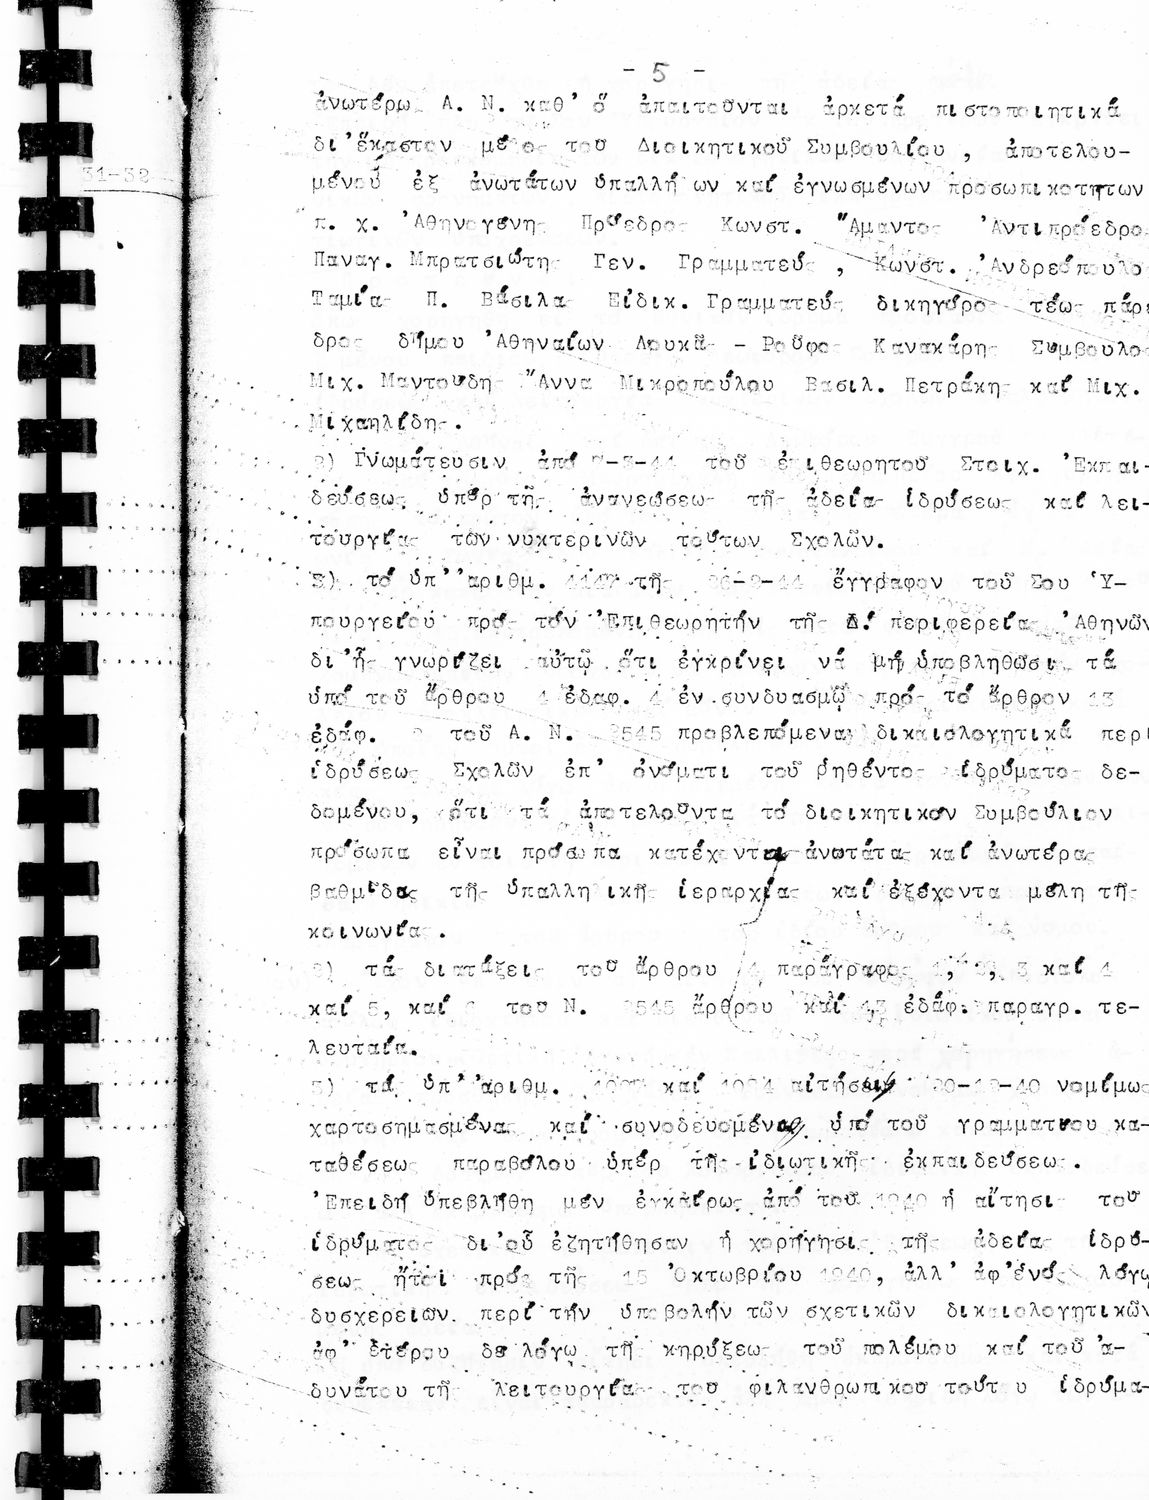 - 5 -
ἀνωτέρω Α. Ν. καθ' ὅ ἀπαιτοῦνται ἀρκετά πιστοποιητικά
δι'ἕκαστον μέλος τοῦ Διοικητικοῦ Συμβουλίου , ἀποτελου-
31-32
μένου ἐξ ἀνωτάτων ὑπαλλήλων καί ἐγνωσμένων προσωπικοτήτων
π. χ. 'Αθηνογένης Πρόεδρος Κωνστ. "Αμαντος 'Αντιπρόεδρος
Παναγ. Μπρατσιώτης Γεν. Γραμματεύς , Κωνστ. 'Ανδρεόπουλο
Ταμίας Π. Βάσιλας Εἰδικ. Γραμματεύς δικηγόρος τέως πάρε
δρος δήμου 'Αθηναίων Λουκᾶς - Ροῦφος Κανακάρης Σύμβουλος
Μιχ. Μαντούδης "Αννα Μικροπούλου Βασιλ. Πετράκης καί Μιχ.
Μιχαηλίδης.
Γνωμάτευσιν ἀπό τοῦ ἐπιθεωρητοῦ Στοιχ. 'Εκπαι-
δεύσεως ὑπέρ τῆς ἀνανεώσεως τῆς ἀδείας ἱδρύσεως καί λει-
τουργίας τῶν νυκτερινῶν τούτων Σχολῶν.
τό ὑπ''αριθμ. τῆς ἔγγραφον τοῦ Σου 'Υ-
πουργείου πρός τόν 'Επιθεωρητήν τῆς Δ! περιφερείας 'Αθηνῶν
δι'ἧς γνωρίζει αὐτῷ ὅτι ἐγκρίνει νά μή ὑποβληθῶσι τά
ὑπό τοῦ ἄρθρου 4 ἐδαφ. 4 ἐν συνδυασμῷ πρός τό ἄρθρον 13
ἐδάφ. τοῦ Α. Ν. 2545 προβλεπόμενα δικαιολογητικά περι
ἱδρύσεως Σχολῶν ἐπ' ὀνόματι τοῦ ρηθέντος ἱδρύματος δε-
δομένου, ὅτι τά ἀποτελοῦντα τό διοικητικόν Συμβούλιον
πρόσωπα εἶναι πρόσωπα κατέχοντα ἀνωτάτας καί ἀνωτέρας
βαθμίδας τῆς ὑπαλληλικῆς ἱεραρχίας καί ἐξέχοντα μέλη τῆς
κοινωνίας.
τάς διατάξεις τοῦ ἄρθρου 4 παράγραφος 1, 2, 3 καί 4
καί 5, καί τοῦ Ν. 2545 ἄρθρου καί 43 ἐδάφ. παραγρ. τε-
λευταία.
τάς ὑπ''αριθμ. καί αἰτήσεις 20-12-40 νομίμως
χαρτοσημασμένας καί συνοδευομένας ὑπό τοῦ γραμματίου κα-
ταθέσεως παραβόλου ὑπέρ τῆς ἰδιωτικῆς ἐκπαιδεύσεως.
'Επειδή ὑπεβλήθη μέν ἐγκαίρως ἀπό τοῦ 1940 ἡ αἴτησις τοῦ
ἱδρύματος δι'οὗ ἐζητήθησαν ἡ χορήγησις τῆς ἀδείας ἱδρύ-
σεως ἤτοι πρός τῆς 15 'Οκτωβρίου 1940, ἀλλ' ἀφ'ἑνός λόγῳ
δυσχερειῶν περί τήν ὑποβολήν τῶν σχετικῶν δικαιολογητικῶν
ἀφ' ἑτέρου δέ λόγῳ τῆς κηρύξεως τοῦ πολέμου καί τοῦ 'α-
δυνάτου τῆς λειτουργίας τοῦ φιλανθρωπικοῦ τούτου ἱδρύμα-